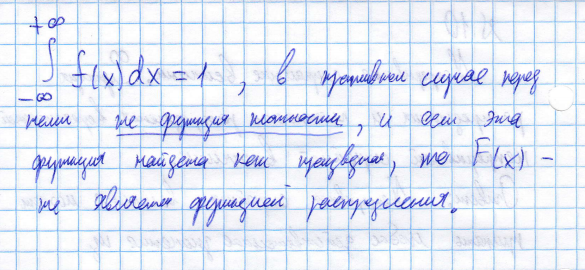 +∞
∫ f(x)dx = 1, в противном случае перед
-∞
нами не функция плотности, и если эта
функция найдена как производная, то F(x) –
не является функцией распределения.